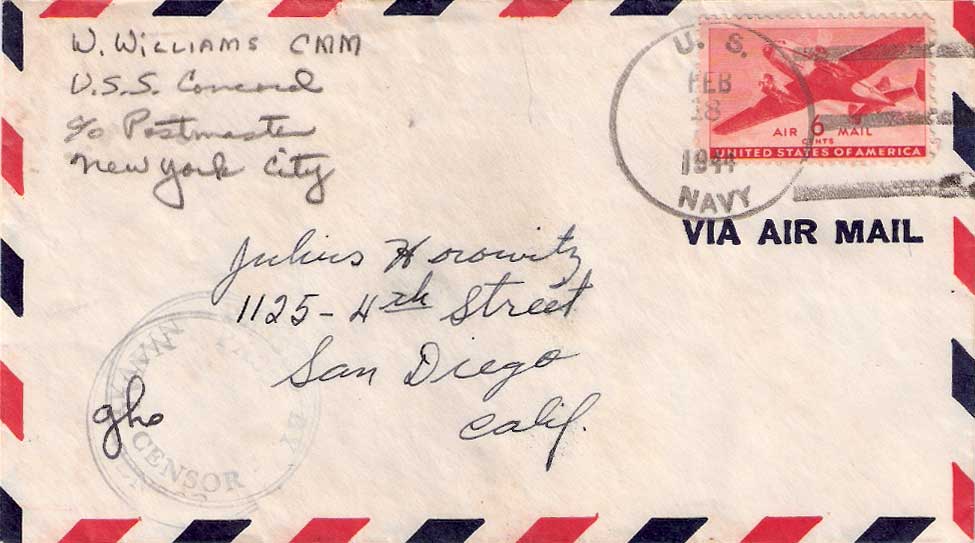 W. Williams CMM
U.S.S. Concord
c/o Postmaster
New York City
U. S.
FEB
18
1944
NAVY
AIR 6 MAIL
CENTS
UNITED STATES OF AMERICA
VIA AIR MAIL
Julius Horowitz
1125 - 4th Street
San Diego
Calif.
BY
CENSOR
gho